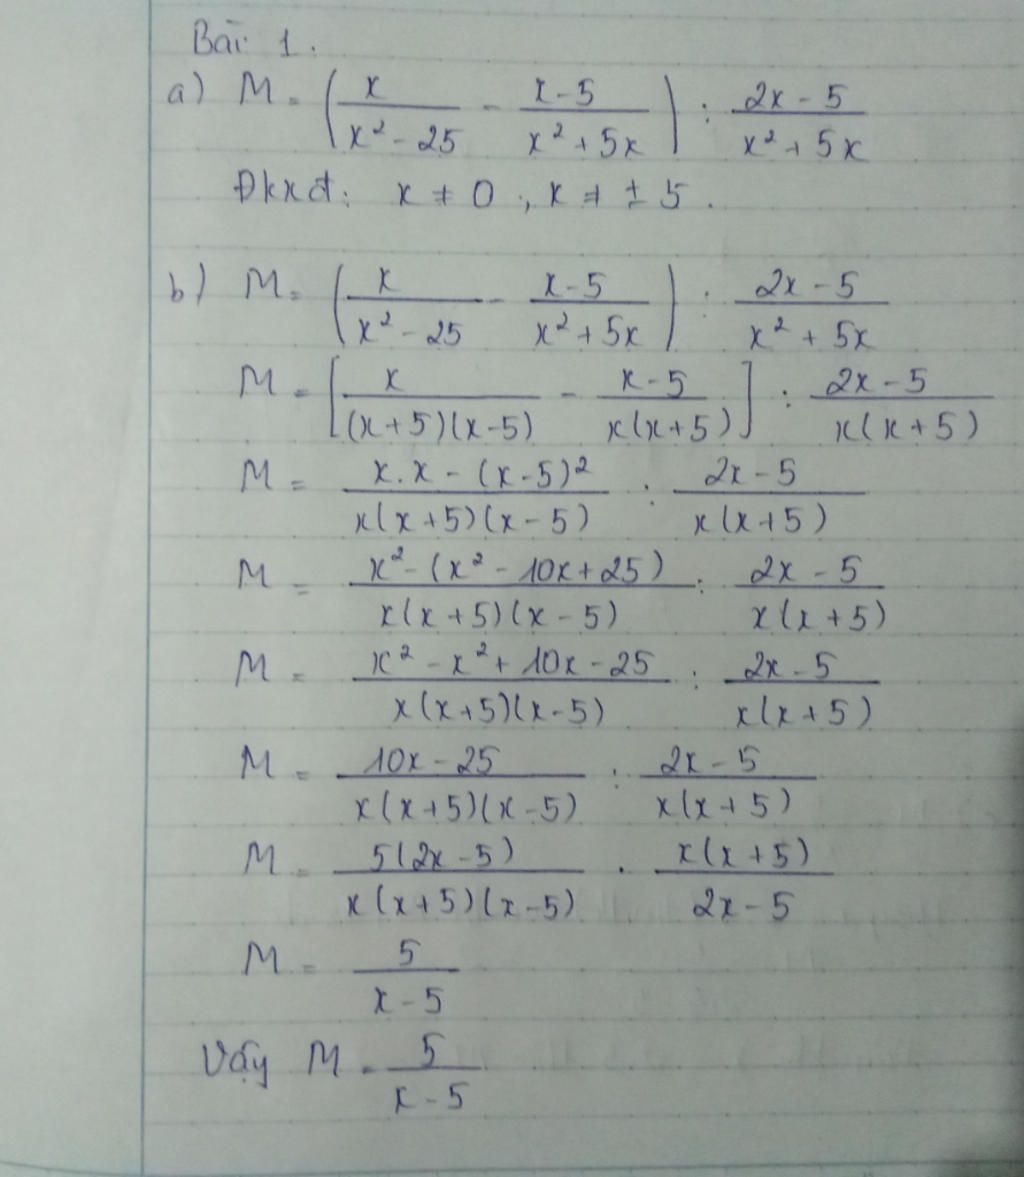 Bài 1.
a) M = (x/(x² - 25) - (x - 5)/(x² + 5x)) : (2x - 5)/(x² + 5x)
Đkxđ: x ≠ 0 ; x ≠ ± 5.
b) M = (x/(x² - 25) - (x - 5)/(x² + 5x)) : (2x - 5)/(x² + 5x)
M = [x/((x + 5)(x - 5)) - (x - 5)/(x(x + 5))] : (2x - 5)/(x(x + 5))
M = (x.x - (x - 5)²)/(x(x + 5)(x - 5)) : (2x - 5)/(x(x + 5))
M = (x² - (x² - 10x + 25))/(x(x + 5)(x - 5)) : (2x - 5)/(x(x + 5))
M = (x² - x² + 10x - 25)/(x(x + 5)(x - 5)) : (2x - 5)/(x(x + 5))
M = (10x - 25)/(x(x + 5)(x - 5)) : (2x - 5)/(x(x + 5))
M = 5(2x - 5)/(x(x + 5)(x - 5)) . x(x + 5)/(2x - 5)
M = 5/(x - 5)
Vậy M = 5/(x - 5)